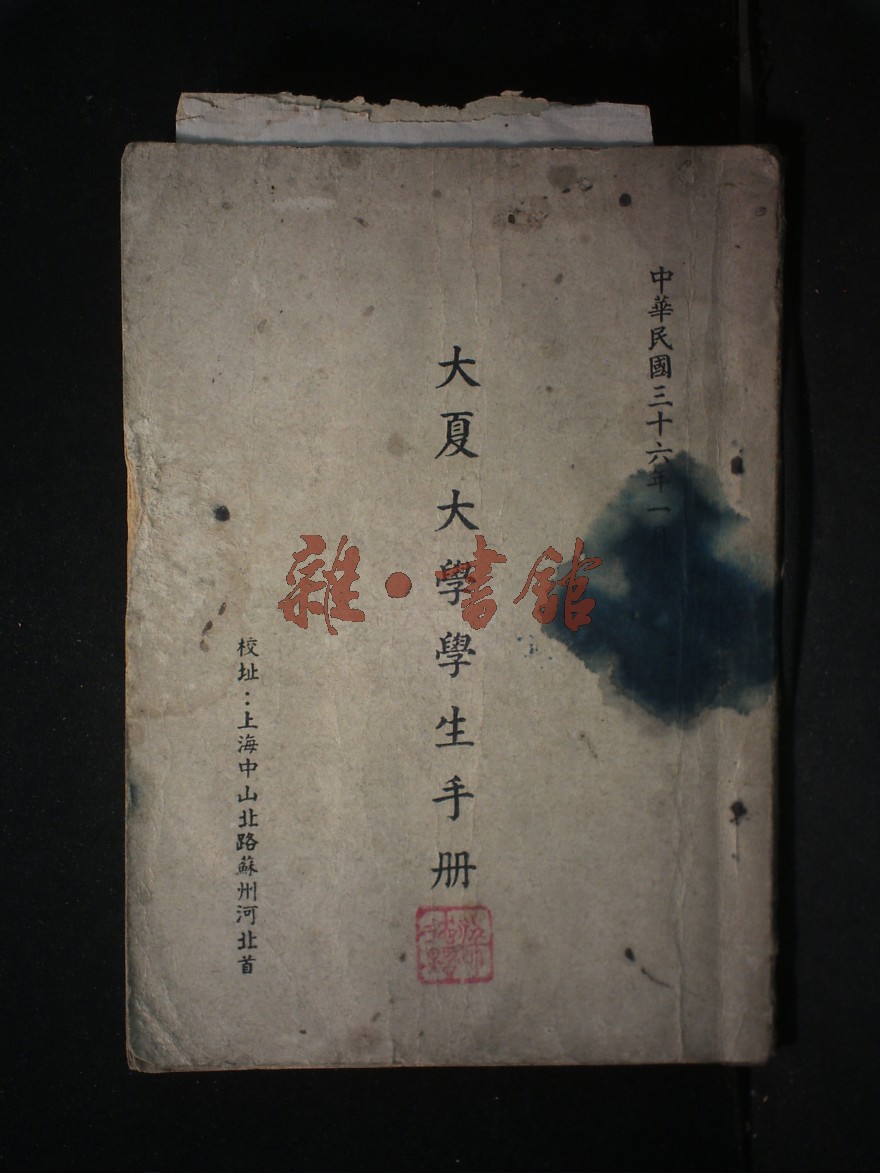 中華民國三十六年一月
大夏大學學生手册
校址：上海中山北路蘇州河北首
雜·書館